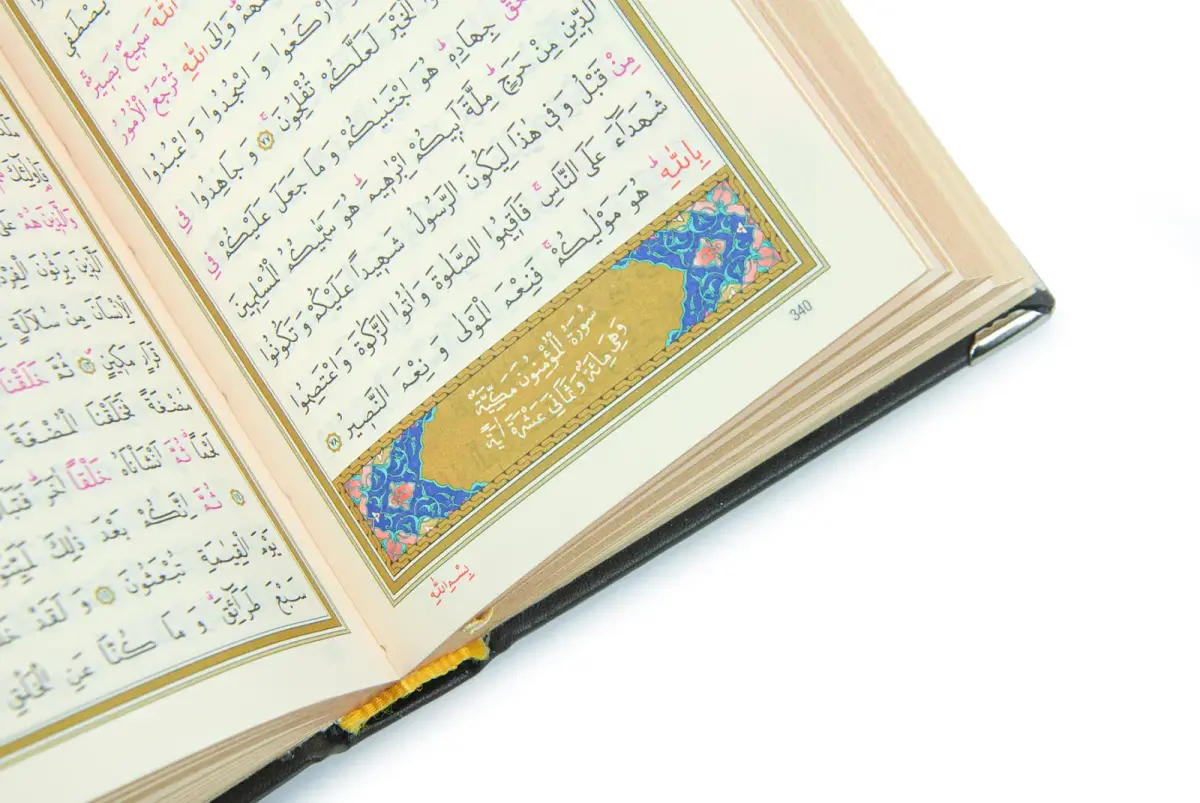 يَصْطَفِي
اللّٰهَ سَمِيعٌ بَصِيرٌ
وَاِلَى اللّٰهِ تُرْجَعُ الْاُمُورُ
ارْكَعُوا وَاسْجُدُوا وَاعْبُدُوا
الْخَيْرَ لَعَلَّكُمْ تُفْلِحُونَ ۚ ﴿٧٧﴾ وَجَاهِدُوا فِي
جِهَادِهِ ۜ هُوَ اجْتَبٰيكُمْ وَمَا جَعَلَ عَلَيْكُمْ فِي
الدِّينِ مِنْ حَرَجٍ ۜ مِلَّةَ اَبِيكُمْ اِبْرٰهِيمَ ۜ هُوَ سَمّٰيكُمُ الْمُسْلِمِينَ
مِنْ قَبْلُ وَفِي هٰذَا لِيَكُونَ الرَّسُولُ شَهِيدًا عَلَيْكُمْ وَتَكُونُوا
شُهَدَٓاءَ عَلَى النَّاسِ ۚ فَاَقِيمُوا الصَّلٰوةَ وَاٰتُوا الزَّكٰوةَ وَاعْتَصِمُوا
بِاللّٰهِ ۜ هُوَ مَوْلٰيكُمْ ۚ فَنِعْمَ الْمَوْلٰى وَنِعْمَ النَّصِيرُ ﴿٧٨﴾
سُورَةُ الْمُؤْمِنُونَ مَكِّيَّةٌ
وَهِيَ مِائَةٌ وَثَمَانِي عَشْرَةَ اٰيَةً
340
بِسْمِ اللّٰهِ
وَالَّذِينَ هُمْ
الَّذِينَ يَرِثُونَ
الْاِنْسَانَ مِنْ سُلَالَةٍ
قَرَارٍ مَكِينٍ ﴿١٣﴾ ثُمَّ خَلَقْنَا
مُضْغَةً فَخَلَقْنَا الْمُضْغَةَ
لَحْمًا ثُمَّ اَنْشَأْنَاهُ خَلْقًا اٰخَرَ
ثُمَّ اِنَّكُمْ بَعْدَ ذٰلِكَ
يَوْمَ الْقِيٰمَةِ تُبْعَثُونَ ﴿١٦﴾ وَلَقَدْ
سَبْعَ طَرَٓائِقَ وَمَا كُنَّا عَنِ الْخَلْقِ